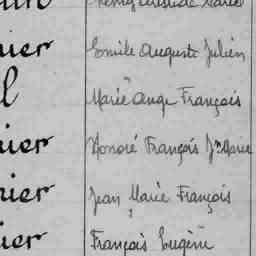 nier Emile Auguste Julien
l Marie Ange François
nier Honoré François Jn Marie
nier Jean Marie François
nier François Eugène